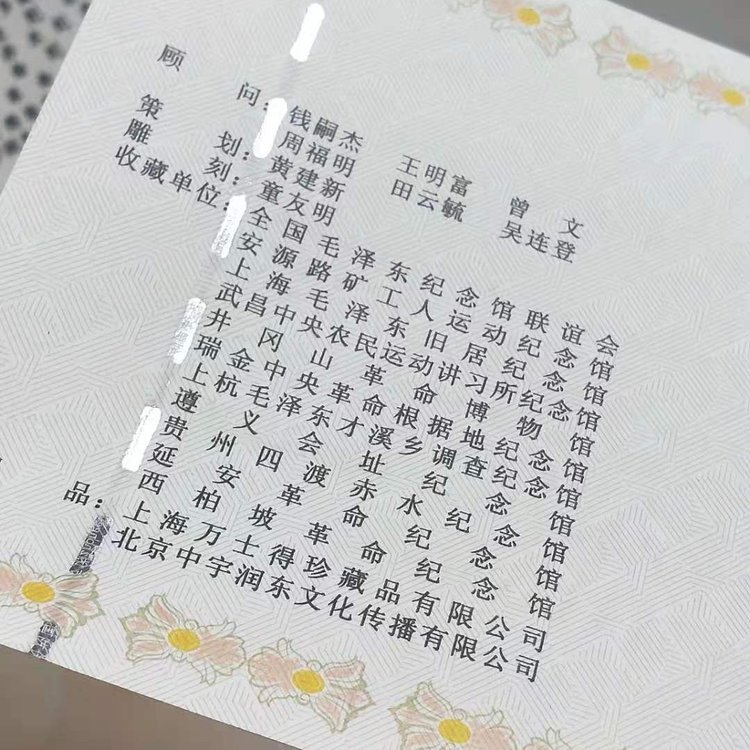 顾问：钱嗣杰 王明富 曾文
周福明 田云毓 吴连登
策划：黄建新
雕刻：童友明
收藏单位：全国毛泽东纪念馆联谊会
安源路矿工人运动纪念馆
上海毛泽东旧居纪念馆
武昌中央农民运动讲习所纪念馆
井冈山革命博物馆
瑞金中央革命根据地纪念馆
上杭毛泽东才溪乡调查纪念馆
遵义会址纪念馆
贵州四渡赤水纪念馆
延安革命纪念馆
西柏坡革命纪念馆
品：上海万士得珍藏品有限公司
北京中宇润东文化传播有限公司